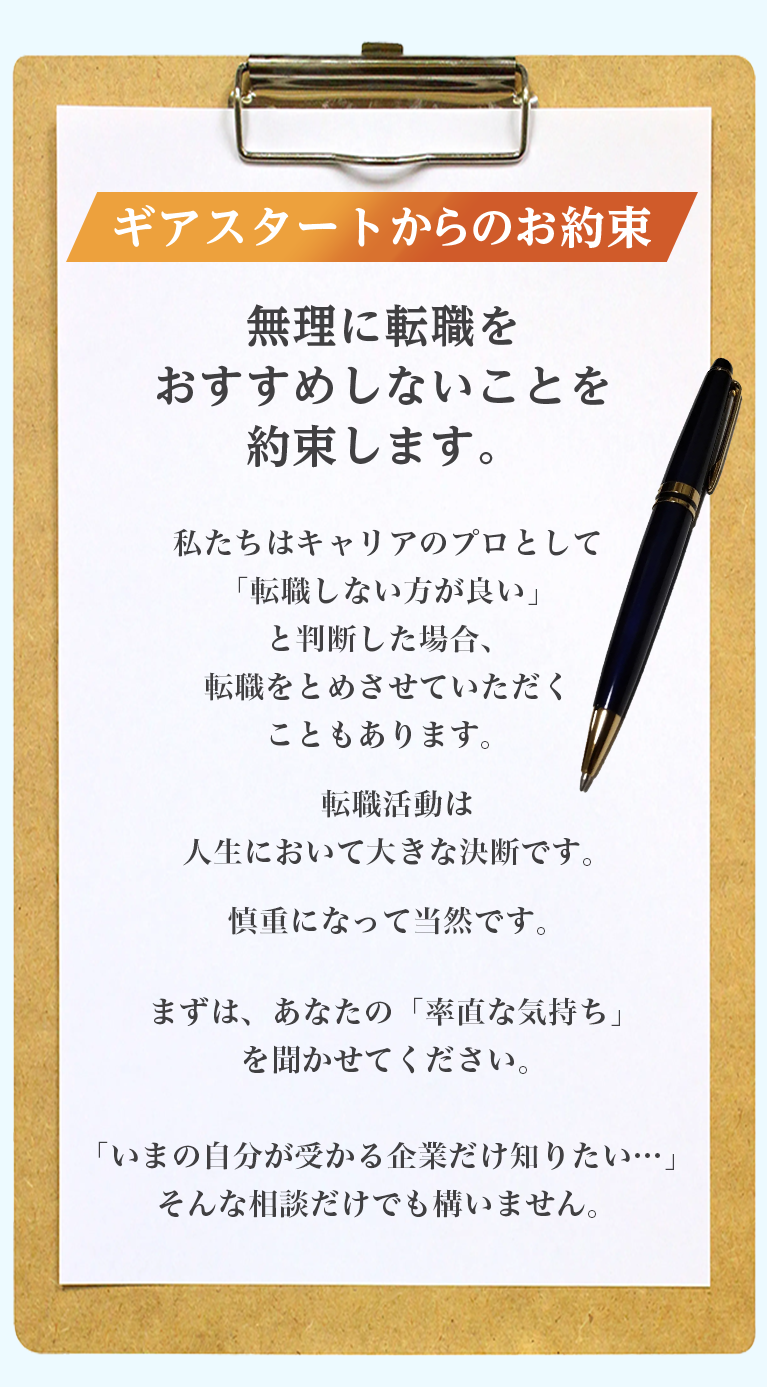 ギアスタートからのお約束
無理に転職を
おすすめしないことを
約束します。
私たちはキャリアのプロとして
「転職しない方が良い」
と判断した場合、
転職をとめさせていただく
こともあります。
転職活動は
人生において大きな決断です。
慎重になって当然です。
まずは、あなたの「率直な気持ち」
を聞かせてください。
「いまの自分が受かる企業だけ知りたい…」
そんな相談だけでも構いません。